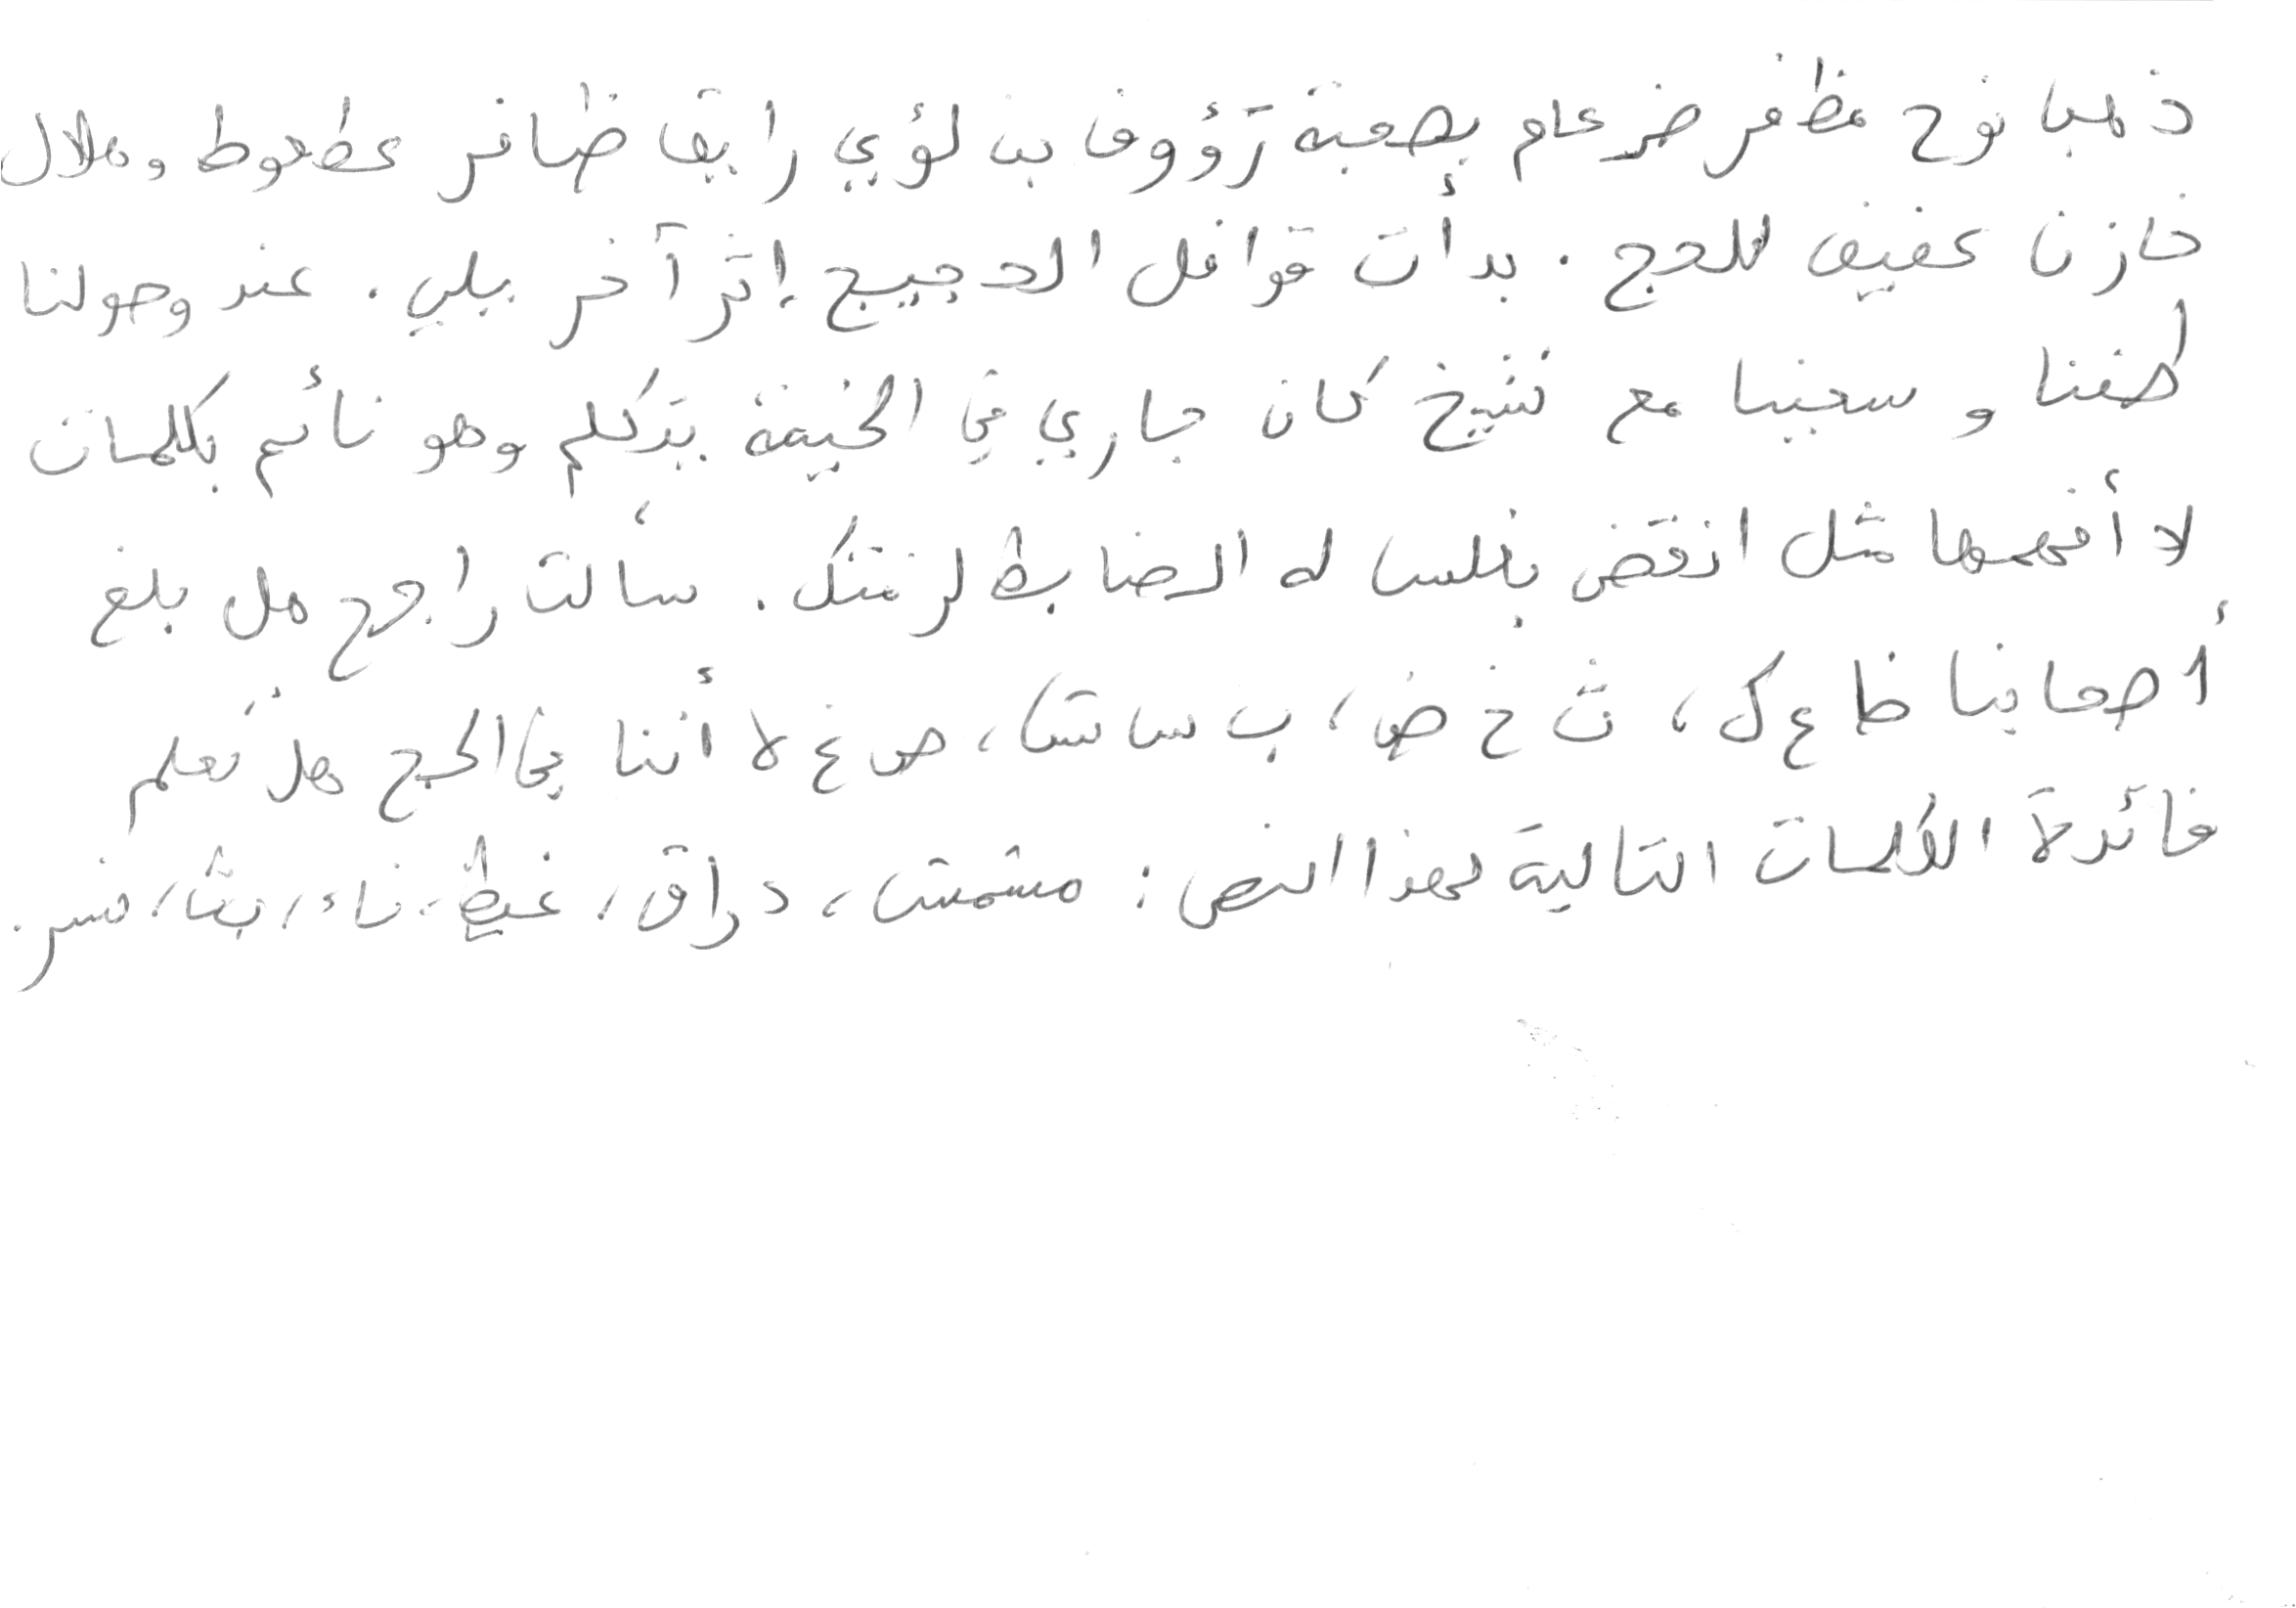 ذهب نوح مظفر ضرغام بصحبة رؤوف بن لؤي رايق ظافر عطعوط وهلال
خازن عفيف للحج . بدأت قوافل الحجيج إثر آخر بيلي . عند وصولنا
طفنا و سعينا مع شيخ كان جاري في الخيمة يتكلم وهو نائم بكلمات
لا أفهمها مثل انقض بلس له الضابط لزمتك . سألت راجح هل بلغ
أصحابنا ظ ع ك ، ث خ ض ، ب س ش ، ص غ لا أننا في الحج هل تعلم
فائدة الكلمات التالية لهذا النص : مشمش ، دراق ، غيظ ، ناء ، بث ، نسر .